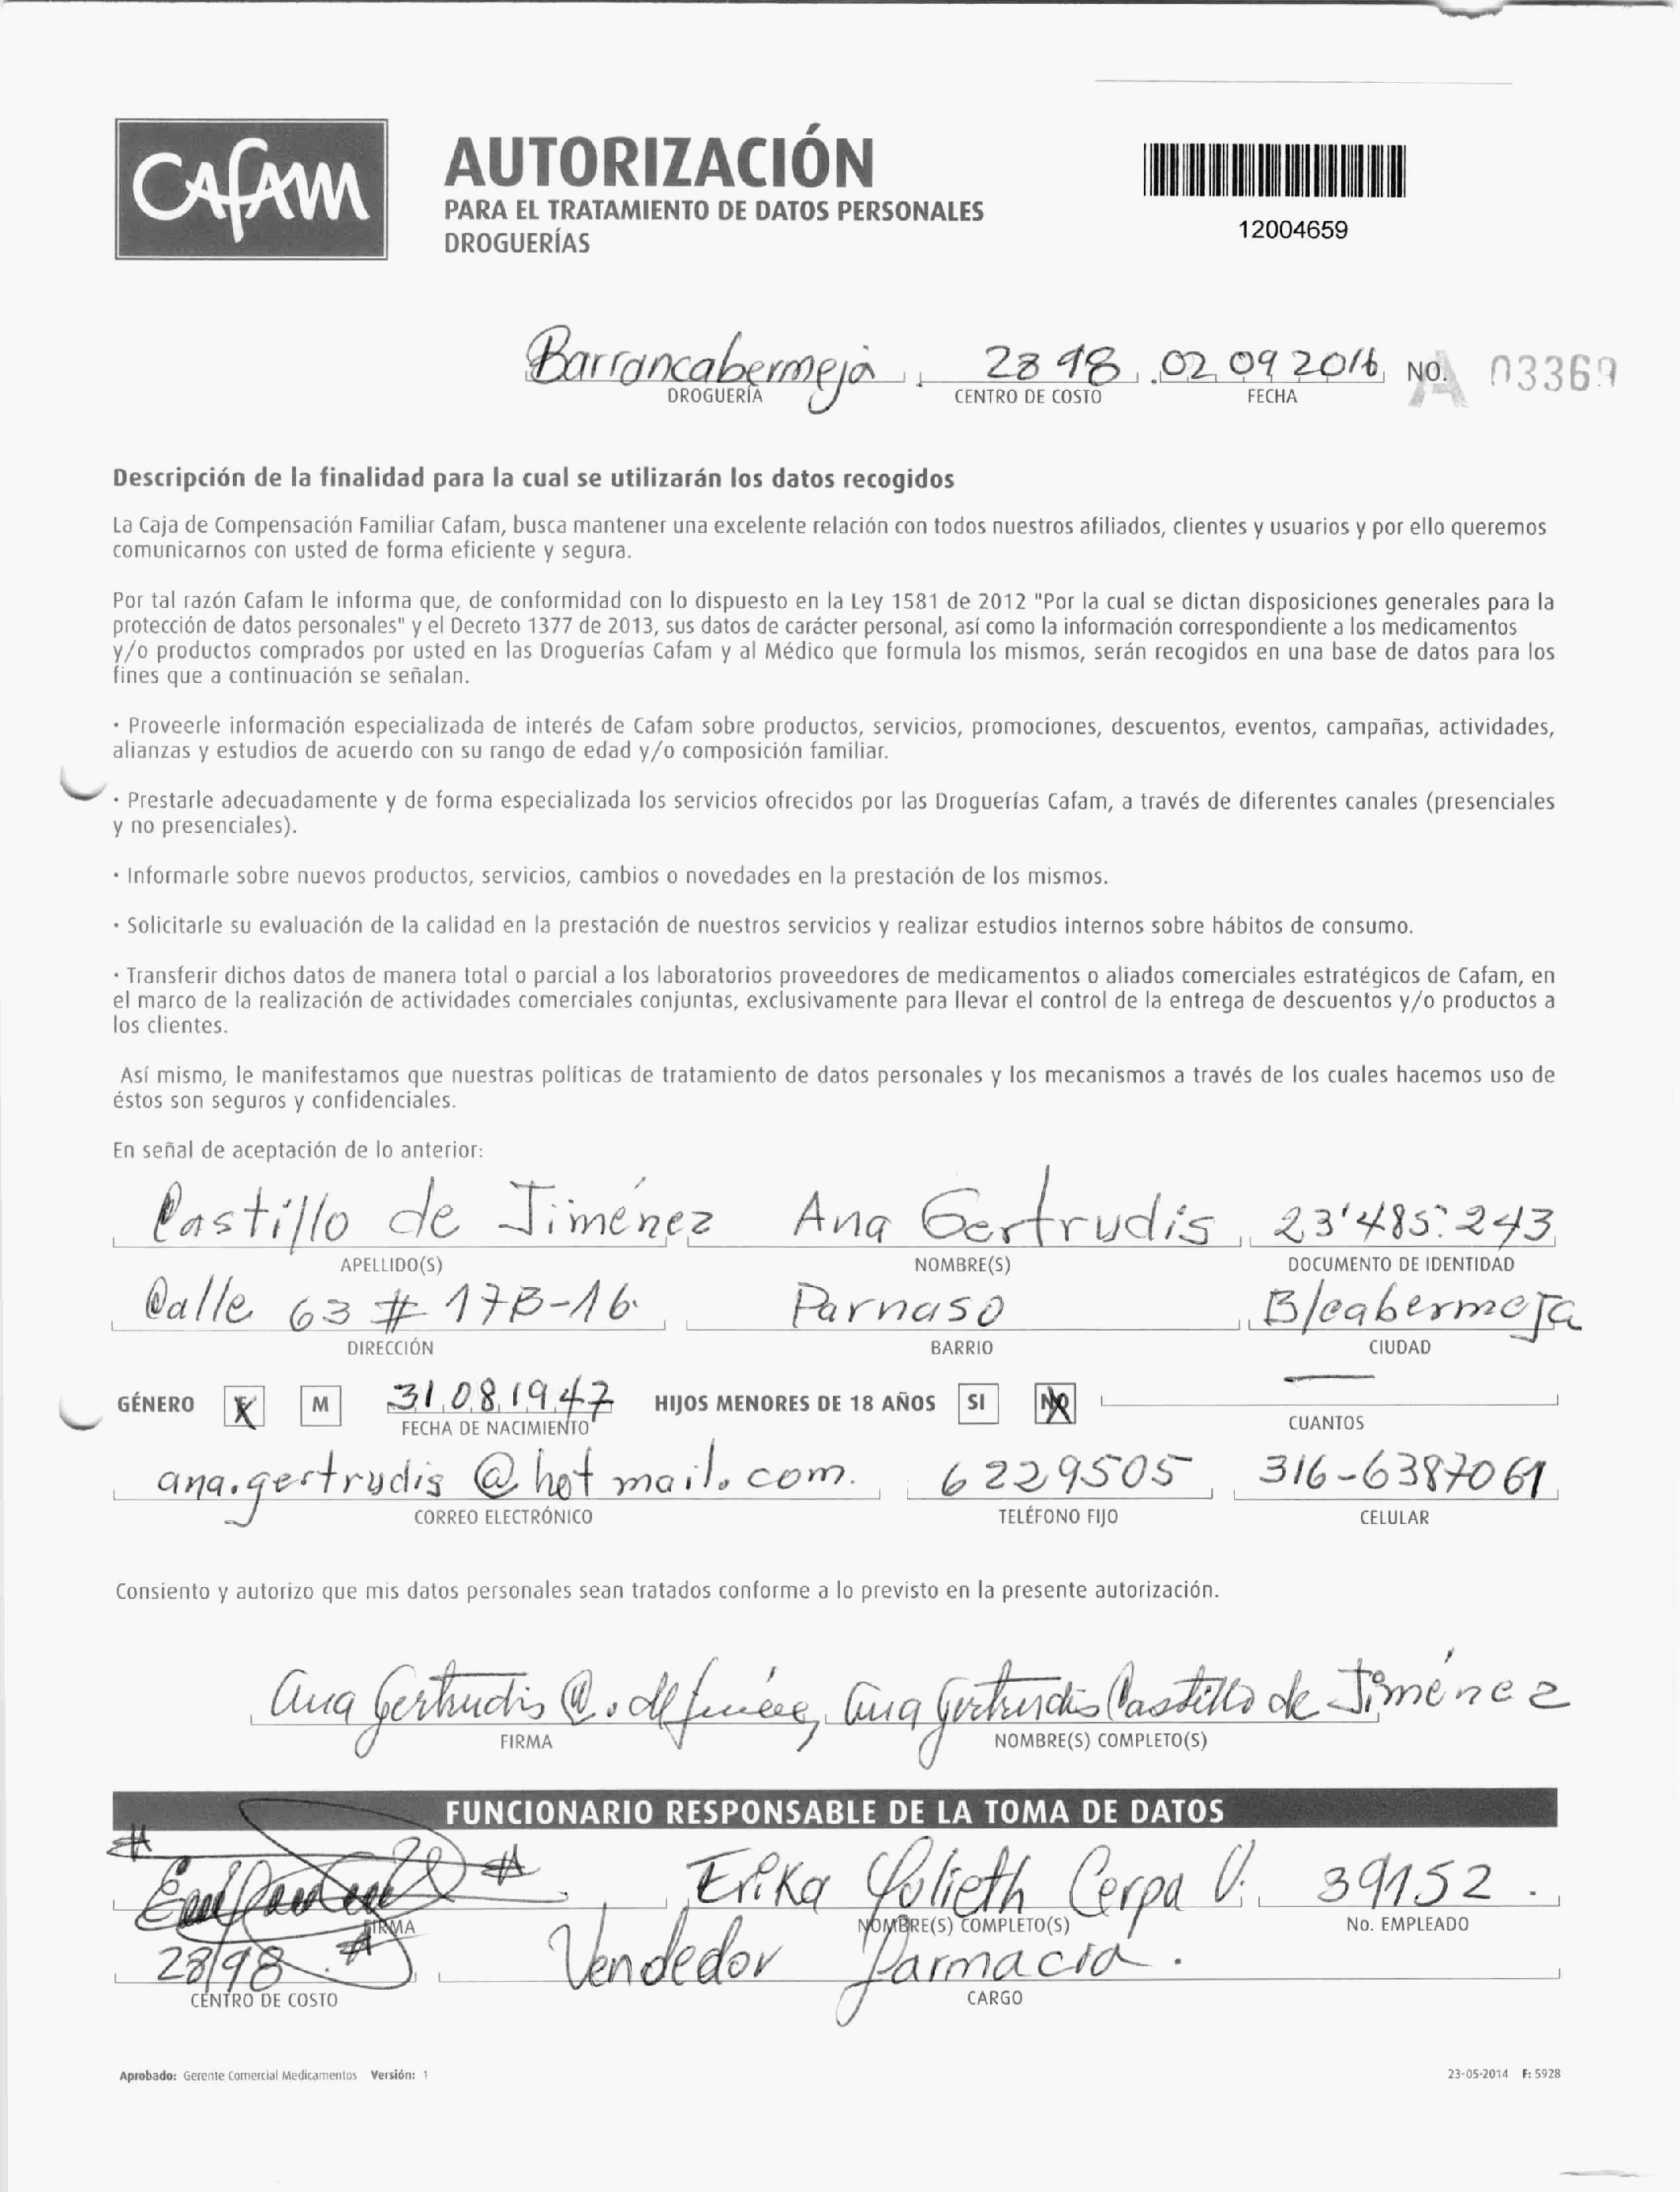 CAFAM
AUTORIZACIÓN
PARA EL TRATAMIENTO DE DATOS PERSONALES
DROGUERÍAS
12004659
Barrancabermeja 2898 02 09 2016 NO. A 03369
DROGUERÍA CENTRO DE COSTO FECHA
Descripción de la finalidad para la cual se utilizarán los datos recogidos
La Caja de Compensación Familiar Cafam, busca mantener una excelente relación con todos nuestros afiliados, clientes y usuarios y por ello queremos
comunicarnos con usted de forma eficiente y segura.
Por tal razón Cafam le informa que, de conformidad con lo dispuesto en la Ley 1581 de 2012 "Por la cual se dictan disposiciones generales para la
protección de datos personales" y el Decreto 1377 de 2013, sus datos de carácter personal, así como la información correspondiente a los medicamentos
y/o productos comprados por usted en las Droguerías Cafam y al Médico que formula los mismos, serán recogidos en una base de datos para los
fines que a continuación se señalan.
· Proveerle información especializada de interés de Cafam sobre productos, servicios, promociones, descuentos, eventos, campañas, actividades,
alianzas y estudios de acuerdo con su rango de edad y/o composición familiar.
· Prestarle adecuadamente y de forma especializada los servicios ofrecidos por las Droguerías Cafam, a través de diferentes canales (presenciales
y no presenciales).
· Informarle sobre nuevos productos, servicios, cambios o novedades en la prestación de los mismos.
· Solicitarle su evaluación de la calidad en la prestación de nuestros servicios y realizar estudios internos sobre hábitos de consumo.
· Transferir dichos datos de manera total o parcial a los laboratorios proveedores de medicamentos o aliados comerciales estratégicos de Cafam, en
el marco de la realización de actividades comerciales conjuntas, exclusivamente para llevar el control de la entrega de descuentos y/o productos a
los clientes.
Así mismo, le manifestamos que nuestras políticas de tratamiento de datos personales y los mecanismos a través de los cuales hacemos uso de
éstos son seguros y confidenciales.
En señal de aceptación de lo anterior:
Castillo de Jiménez Ana Gertrudis 23'485.243
APELLIDO(S) NOMBRE(S) DOCUMENTO DE IDENTIDAD
Calle 63 # 17B-16 Parnaso B/cabermeja
DIRECCIÓN BARRIO CIUDAD
GÉNERO F M 31 08 1947 HIJOS MENORES DE 18 AÑOS SI NO —
FECHA DE NACIMIENTO CUANTOS
ana.gertrudis @ hotmail.com. 6229505 316-6387061
CORREO ELECTRÓNICO TELÉFONO FIJO CELULAR
Consiento y autorizo que mis datos personales sean tratados conforme a lo previsto en la presente autorización.
Ana Gertrudis C. de Jiménez Ana Gertrudis Castillo de Jiménez
FIRMA NOMBRE(S) COMPLETO(S)
FUNCIONARIO RESPONSABLE DE LA TOMA DE DATOS
Erika Yolieth Cerpa V. 39152.
FIRMA NOMBRE(S) COMPLETO(S) No. EMPLEADO
2898 Vendedor farmacia.
CENTRO DE COSTO CARGO
Aprobado: Gerente Comercial Medicamentos Versión: 1 23-05-2014 F: 5928